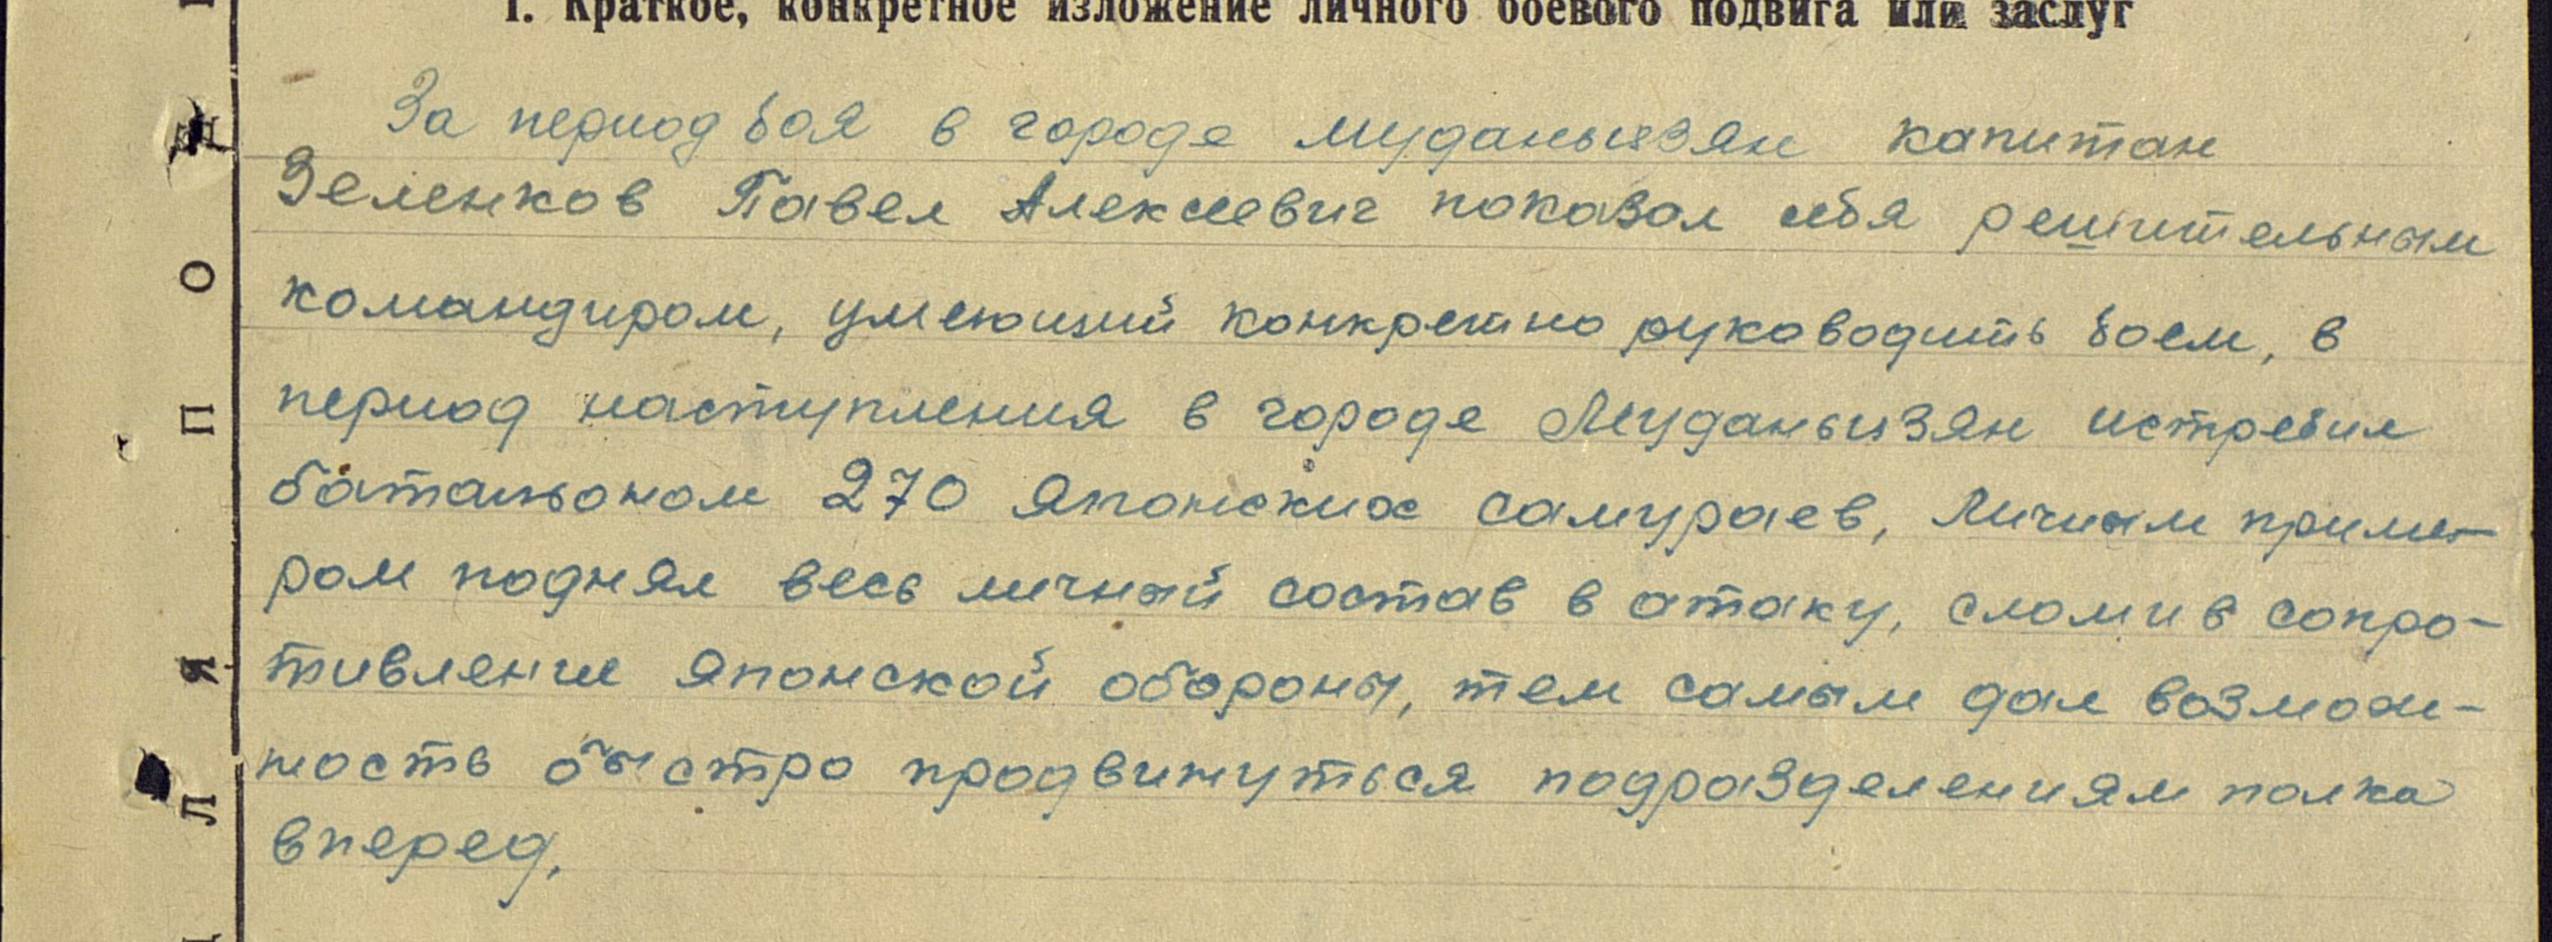 1. Краткое, конкретное изложение личного боевого подвига или заслуг
За период боя в городе Муданьцзян капитан
Зеленков Павел Алексеевич показал себя решительным
командиром, умеющий конкретно руководить боем, в
период наступления в городе Муданьцзян истребил
батальоном 270 японских самураев, личным приме-
ром поднял весь личный состав в атаку, сломив сопро-
тивление японской обороны, тем самым дал возмож-
ность быстро продвинуться подразделениям полка
вперед.